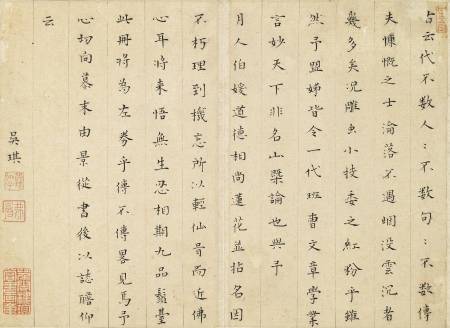 占云代不数人〻不数句〻不数傳
夫慷慨之士淪落不遇堙没雲沉者
幾多矣況雕虫小技委之紅粉乎雖
然予盟姊皆令一代班曹文章學業
言妙天下非名山槩論也與予
月人伯媛道德相尚蓮花並拈名因
不朽理到機忘所以輕仙晋而近佛
心耳將来悟無生忍相期九品髻臺
此冊將為左券乎傳不傳畧見焉予
心切向慕末由景從書後以誌瞻仰
云
吳琪